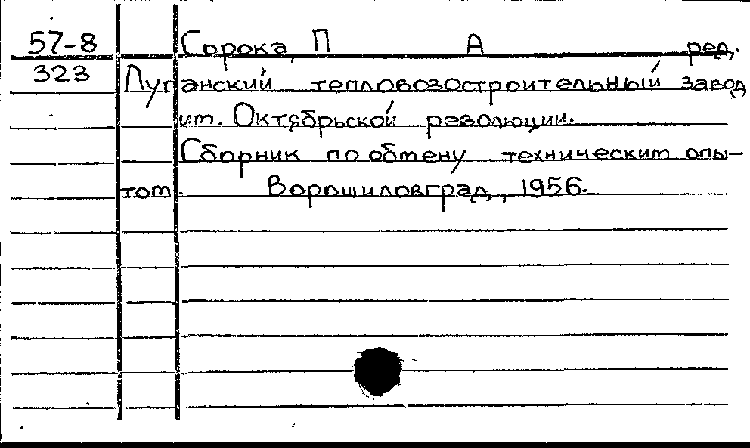 57-8 Сорока П А ред.
323 Луганский тепловозостроительный завод
им. Октябрьской революции.
Сборник по обмену техническим опы-
том. Ворошиловград, 1956.